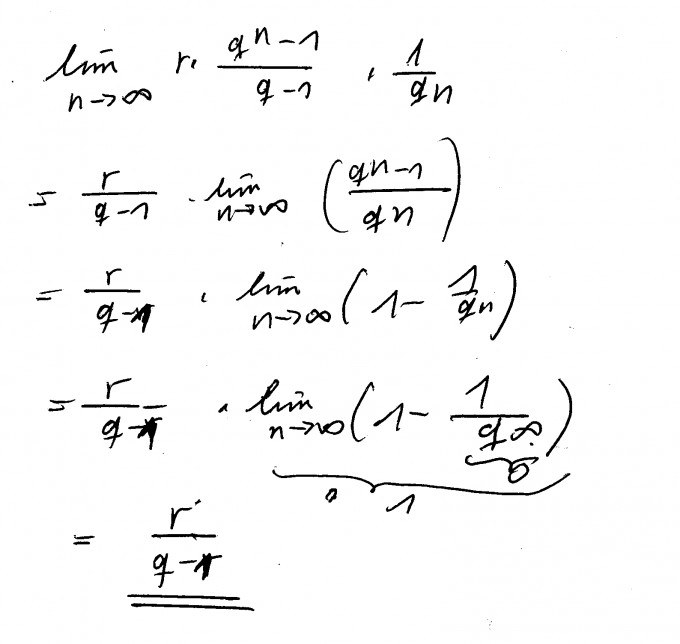 lim n→∞ r · (qⁿ - 1)/(q - 1) · 1/qⁿ
= r/(q - 1) · lim n→∞ ((qⁿ - 1)/qⁿ)
= r/(q - 1) · lim n→∞ (1 - 1/qⁿ)
= r/(q - 1) · lim n→∞ (1 - 1/q^∞)
0
1
= r/(q - 1)